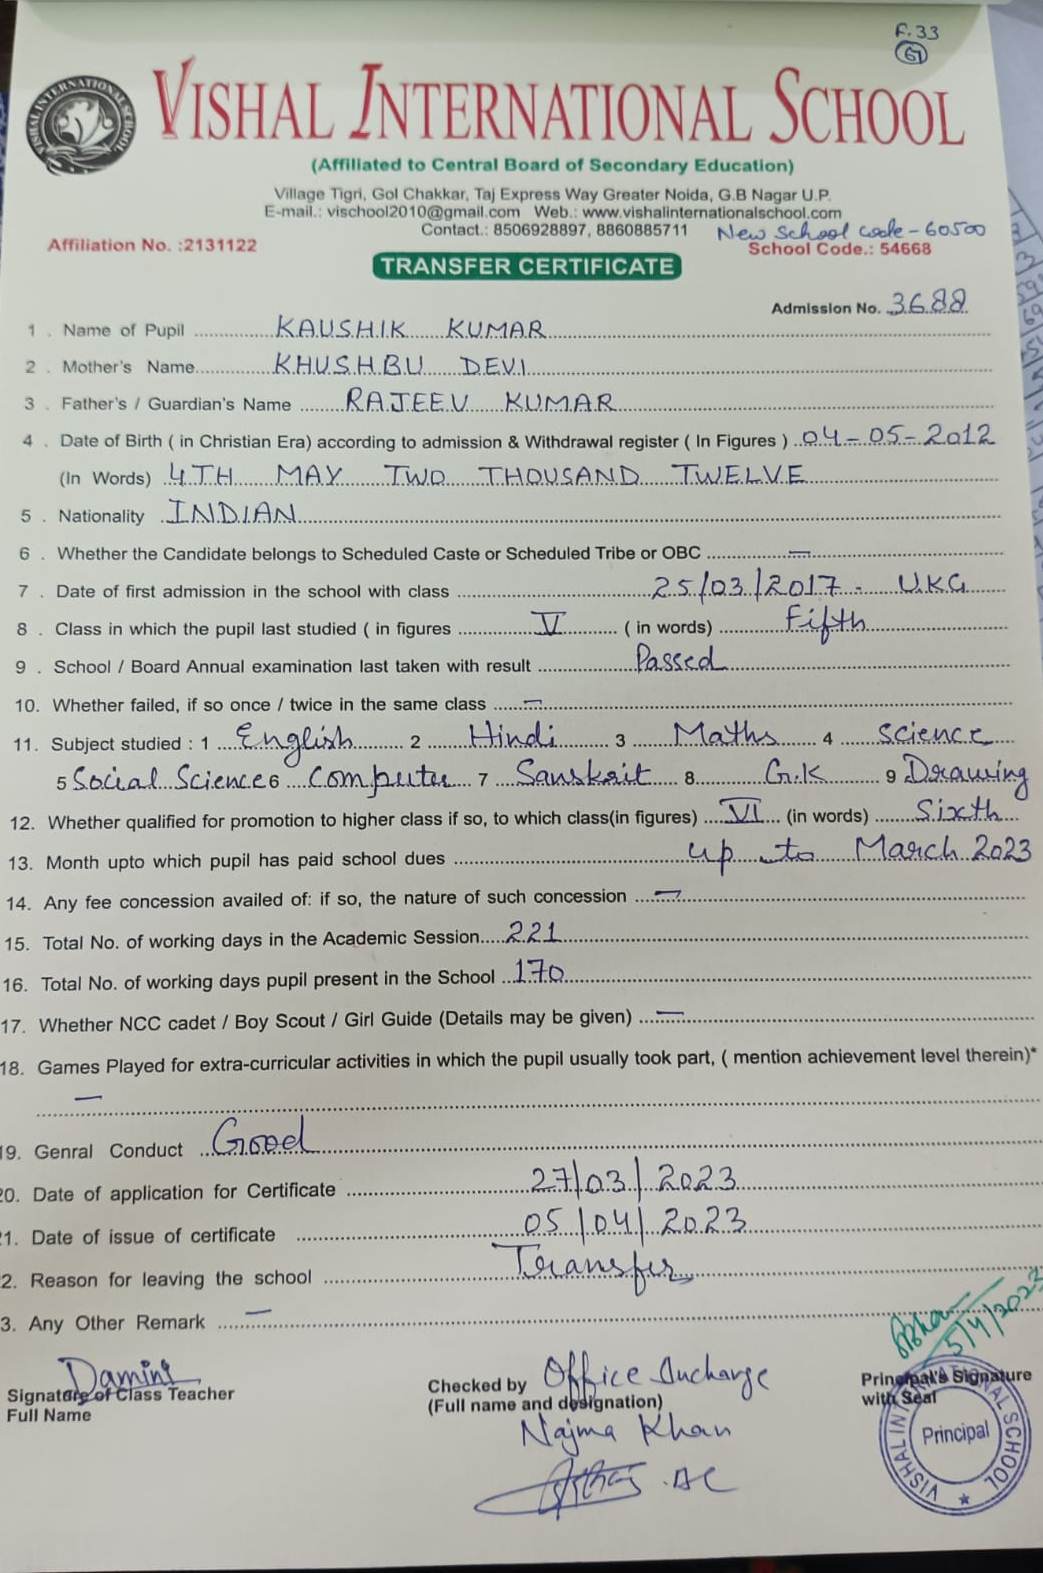 F.33
67
VISHAL INTERNATIONAL SCHOOL
(Affiliated to Central Board of Secondary Education)
Village Tigri, Gol Chakkar, Taj Express Way Greater Noida, G.B Nagar U.P.
E-mail.: vischool2010@gmail.com Web.: www.vishalinternationalschool.com
Contact.: 8506928897, 8860885711 New School code - 60500
Affiliation No. :2131122 School Code.: 54668
TRANSFER CERTIFICATE
Admission No. 3688
1 . Name of Pupil KAUSHIK KUMAR
2 . Mother's Name KHUSHBU DEVI
3 . Father's / Guardian's Name RAJEEV KUMAR
4 . Date of Birth ( in Christian Era) according to admission & Withdrawal register ( In Figures ) 04-05-2012
(In Words) 4TH MAY TWO THOUSAND TWELVE
5 . Nationality INDIAN
6 . Whether the Candidate belongs to Scheduled Caste or Scheduled Tribe or OBC —
7 . Date of first admission in the school with class 25/03/2017 - U.K.G
8 . Class in which the pupil last studied ( in figures V ( in words) Fifth
9 . School / Board Annual examination last taken with result Passed
10. Whether failed, if so once / twice in the same class —
11. Subject studied : 1 English 2 Hindi 3 Maths 4 science
5 Social Science 6 Computer 7 Sanskrit 8. G.K 9 Drawing
12. Whether qualified for promotion to higher class if so, to which class(in figures) VI (in words) Sixth
13. Month upto which pupil has paid school dues up to March 2023
14. Any fee concession availed of: if so, the nature of such concession —
15. Total No. of working days in the Academic Session 221
16. Total No. of working days pupil present in the School 170
17. Whether NCC cadet / Boy Scout / Girl Guide (Details may be given) —
18. Games Played for extra-curricular activities in which the pupil usually took part, ( mention achievement level therein)*
—
19. Genral Conduct Good
20. Date of application for Certificate 27/03/2023
21. Date of issue of certificate 05/04/2023
2. Reason for leaving the school Transfer
3. Any Other Remark —
5/4/2023
Damini
Signature of Class Teacher
Full Name
Checked by Office Incharge
(Full name and designation)
Najma Khan
Principal's Signature
with Seal
VISHAL INTERNATIONAL SCHOOL
Principal